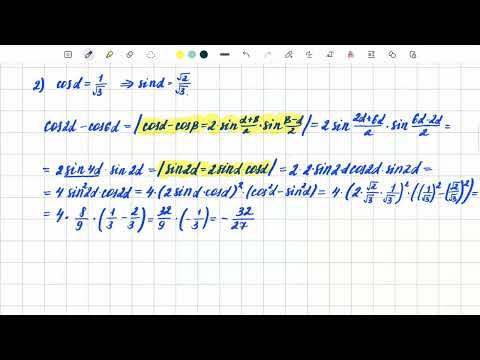 2) cosα = 1/√3 ⇒ sinα = √2/√3
cos2α - cos6α = | cosα - cosβ = 2·sin (α+β)/2 · sin (β-α)/2 | = 2 sin (2α+6α)/2 · sin (6α-2α)/2 =
= 2 sin4α · sin2α = | sin2α = 2sinα cosα | = 2·2·sin2α cos2α · sin2α =
= 4 sin²2α cos2α = 4·(2 sinα·cosα)²·(cos²α - sin²α) = 4·(2·√2/√3·1/√3)²·((1/√3)² - (√2/√3)²) =
= 4 · 8/9 · (1/3 - 2/3) = 32/9 · (-1/3) = - 32/27